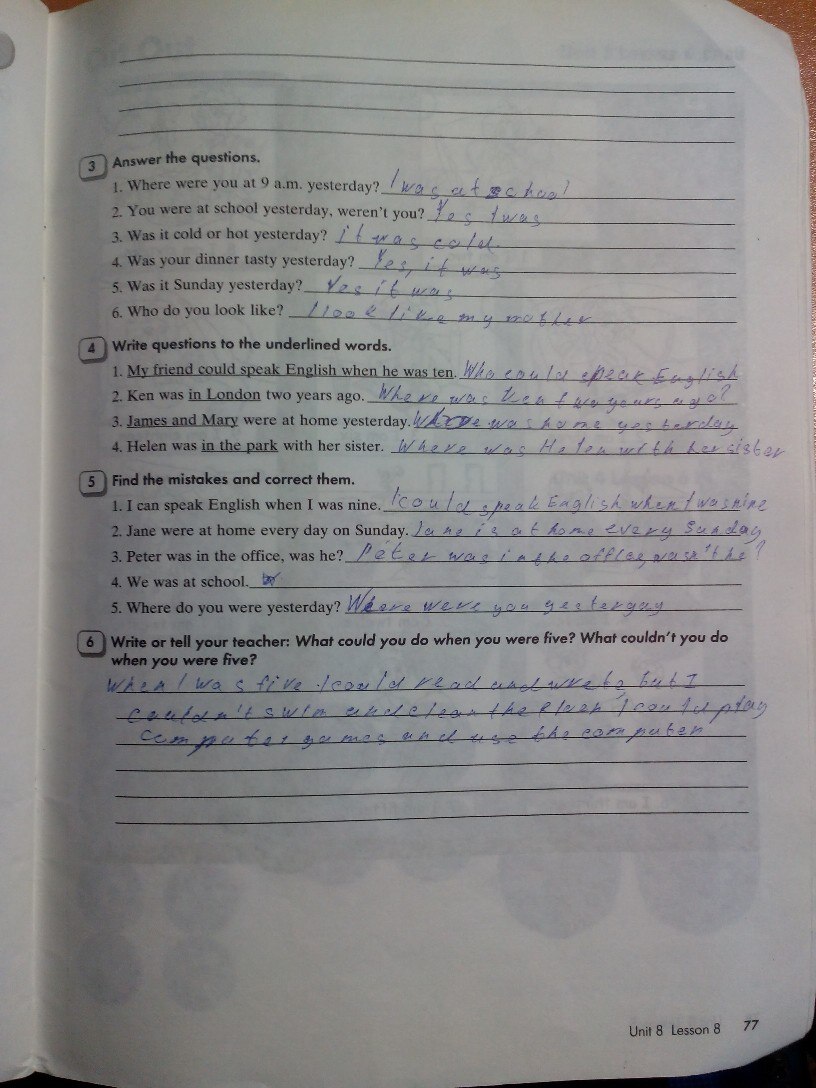 3 Answer the questions.
1. Where were you at 9 a.m. yesterday? I was at school
2. You were at school yesterday, weren't you? Yes I was
3. Was it cold or hot yesterday? it was cold
4. Was your dinner tasty yesterday? Yes, it was
5. Was it Sunday yesterday? Yes it was
6. Who do you look like? I look like my mother
4 Write questions to the underlined words.
1. My friend could speak English when he was ten. Who could speak English
2. Ken was in London two years ago. Where was Ken two years ago?
3. James and Mary were at home yesterday. was home yesterday
4. Helen was in the park with her sister. Where was Helen with her sister
5 Find the mistakes and correct them.
1. I can speak English when I was nine. I could speak English when I was nine
2. Jane were at home every day on Sunday. Jane is at home every Sunday
3. Peter was in the office, was he? Peter was in the office, wasn't he?
4. We was at school.
5. Where do you were yesterday? Where were you yestergay
6 Write or tell your teacher: What could you do when you were five? What couldn't you do
when you were five?
When I was five I could read and but I
couldn't swim and clean the I could play
computer games and use the computer
Unit 8 Lesson 8 77